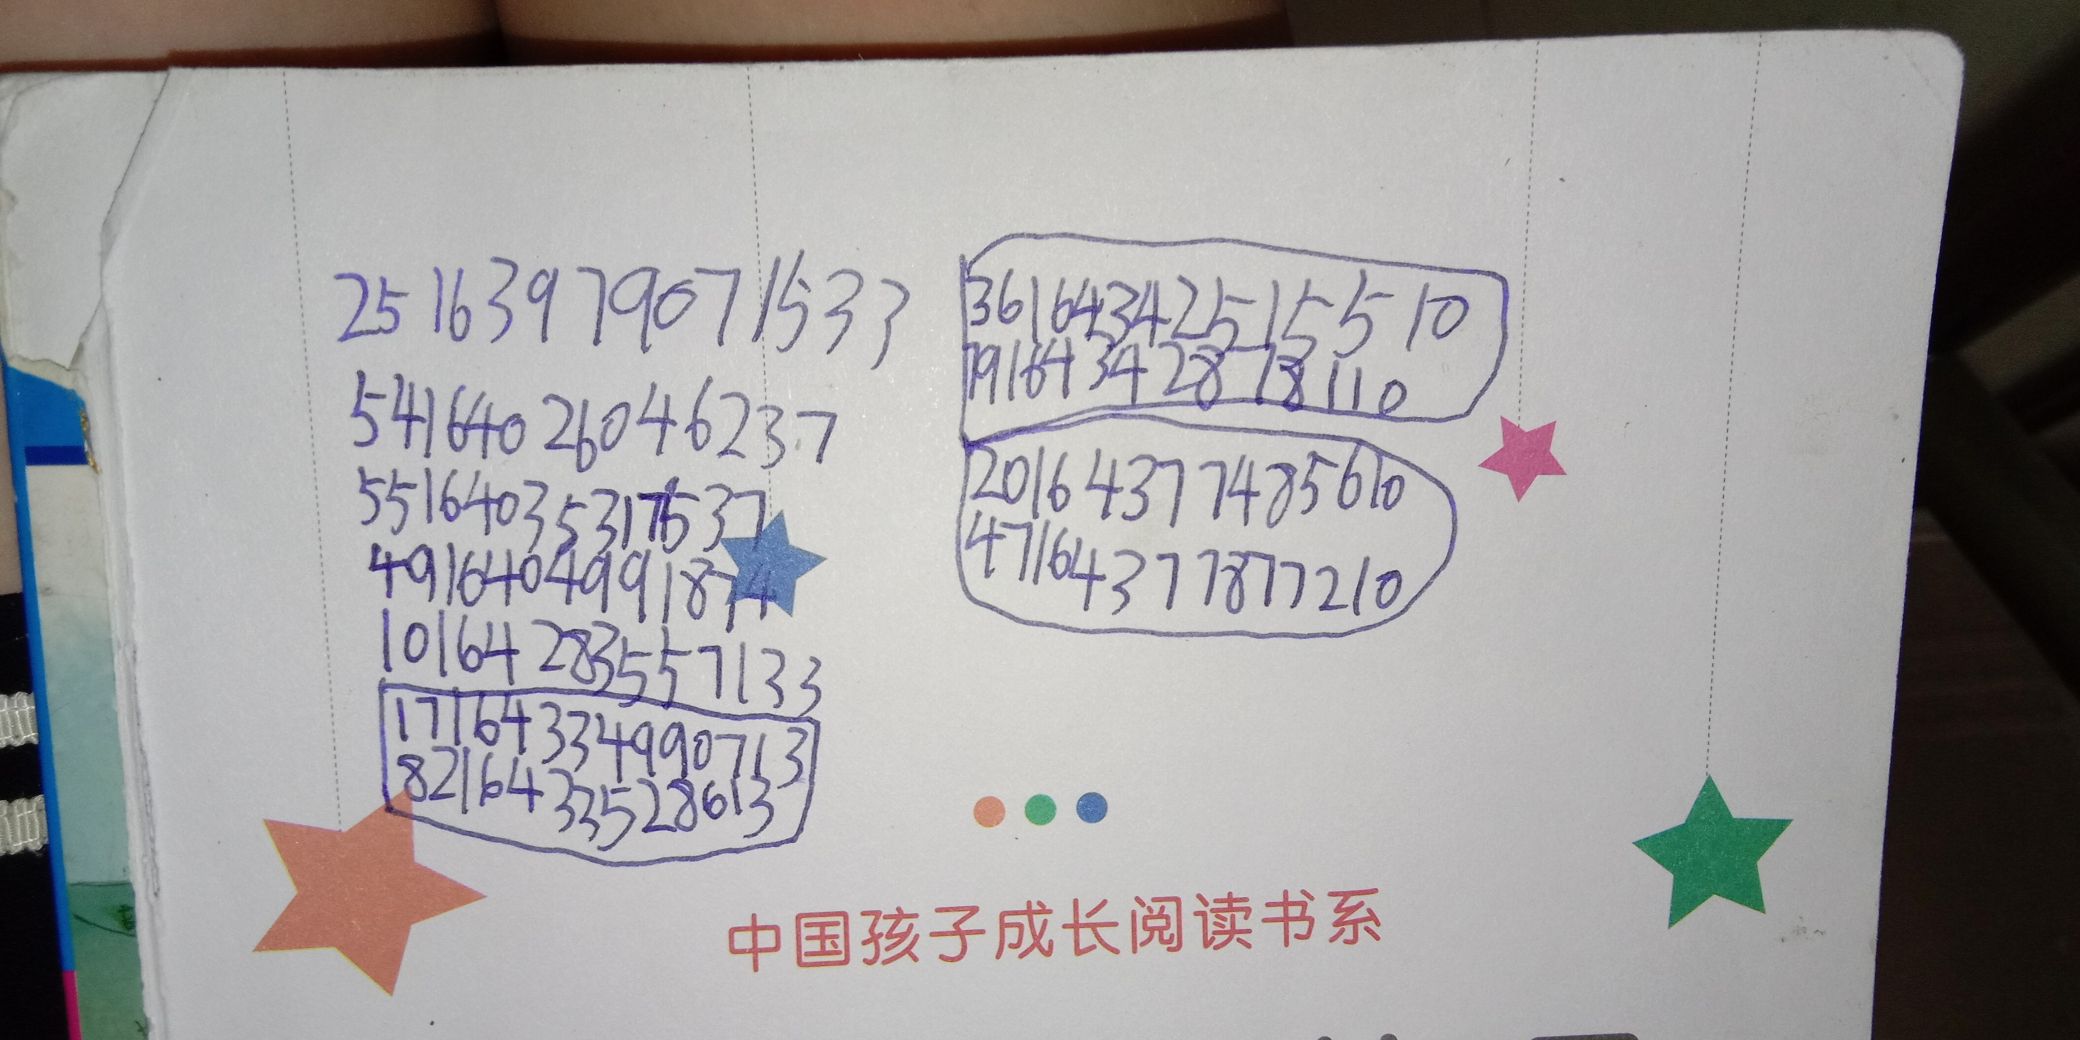 25163979071533
54164026046237
551640353176537
49164049918774
1016428355 7133
17164334990713
8216433528613
36164342515510
191643428781110
20164377485610
47164377877210
中国孩子成长阅读书系